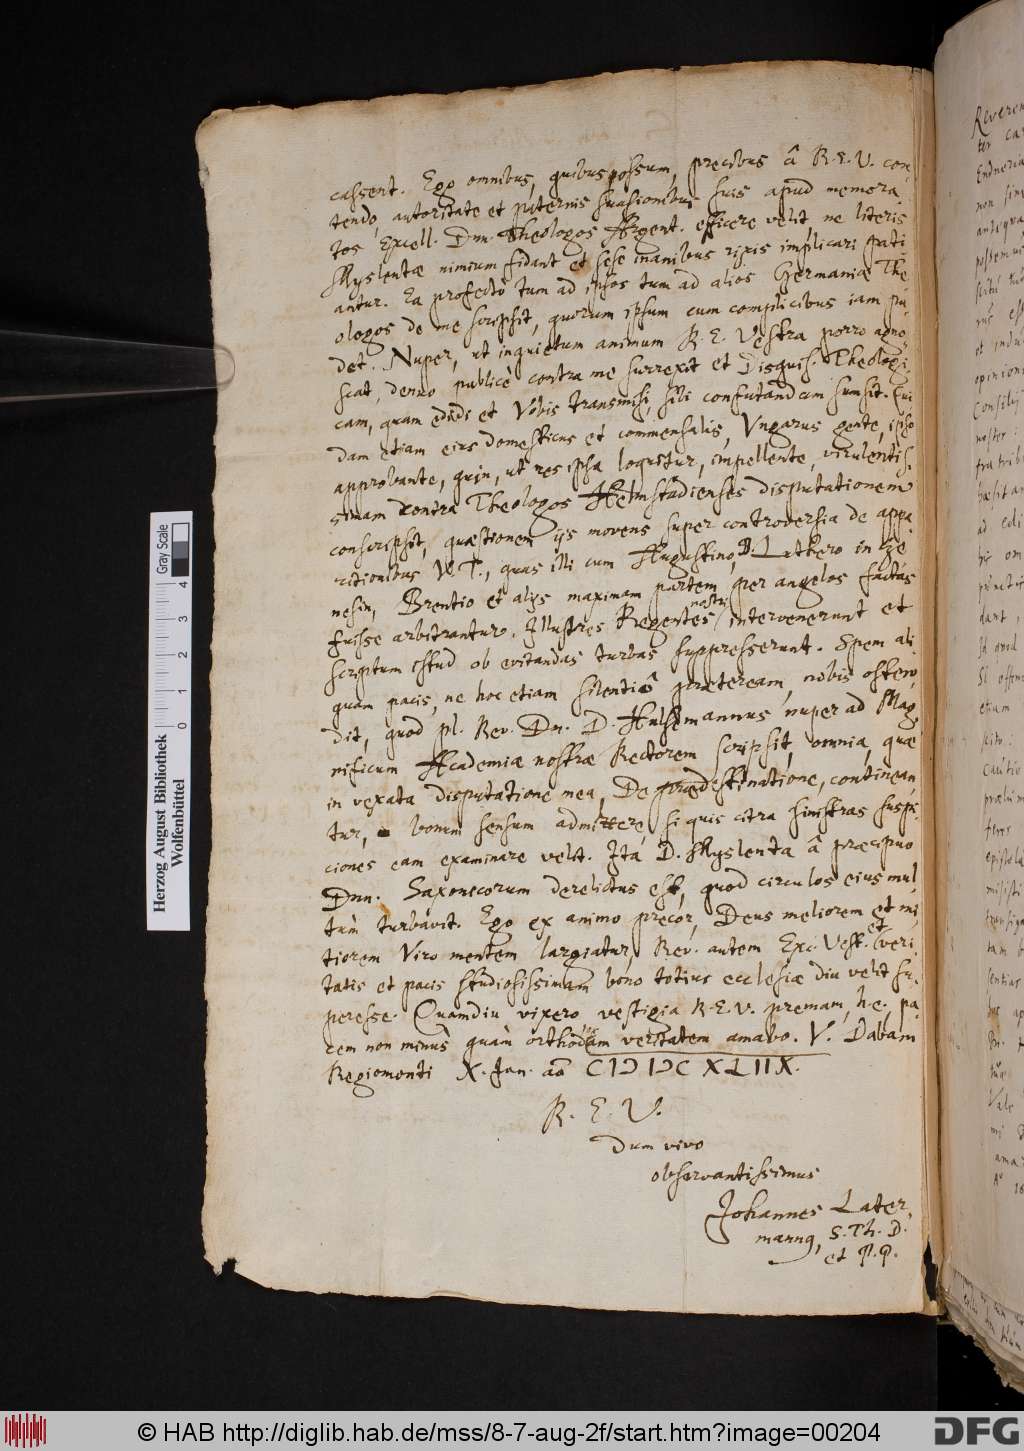 cassent. Ego omnibus, quibus possum, precibus â R. E. V. con-
tendo, autoritate et paternis suasionibus suis apud memora-
tos Excell. Dnn. Theologos Argent. efficere velit ne literis
Myslentæ nimium fidant et sese inanibus rixis implicari pati
antur. Ea profectò tum ad ipsos tum ad alios Germaniæ The
ologos de me scripsit, quorum ipsum cum complicibus iam pu-
det. Nuper, ut inquietum animum R. E. Vestra porro agno-
scat, denuo publicè contra me surrexit et Disquis. Theologi-
cam, quam edidi et Vobis transmisi, sibi confutandam sumsit. Qui
dam etiam eius domesticus et commensalis, Ungarus gente, ipso
approbante, quin, ut res ipsa loquitur, impellente, virulentis-
simam contra Theologos Helmstadienses disputationem
conscripsit, quæstionem ijs movens super controversia de appa
ritionibus V. T., quas illi cum Augustino, D. Luthero in Ge
nesin, Brentio et alijs maximam partem per angelos factas
fuisse arbitrantur. Illustres Regentes nostri intervenerunt et
scriptum istud ob evitandas turbas suppresserunt. Spem ali
quam pacis, ne hoc etiam silentiô præteream, nobis osten-
dit, quod pl. Rev. Dn. D. Hulsemannus nuper ad Mag
nificum Academiæ nostræ Rectorem scripsit, omnia, quæ
in vexata disputatione mea, De prædestinatione, continean
tur, bonum sensum admittere, si quis citra sinistras suspi-
ciones eam examinare velit. Ita D. Myslenta â præcipuo
Dnn. Saxonicorum derelictus est, quod circulos eius mul-
tùm turbavit. Ego ex animo precor, Deus meliorem et mi-
tiorem Viro mentem largiatur, Rev. autem Exc. Vest. et veri
tatis et pacis studiosissimam bono totius ecclesiæ diu velit su-
peresse. Quamdiu vixero vestigia R. E. V. premam, h. e. pa-
cem non minùs quàm veritatem amabo. V. Dabam
Regiomonti X. Jan. aô CIƆ IƆC XLIIX.
R. E. V.
Dum vivo
observantissimus
Johannes Later-
mannus, S. Th. D.
et P. P.
Herzog August Bibliothek
Wolfenbüttel
0 1 2 3 4
Gray Scale
© HAB http://diglib.hab.de/mss/8-7-aug-2f/start.htm?image=00204
DFG